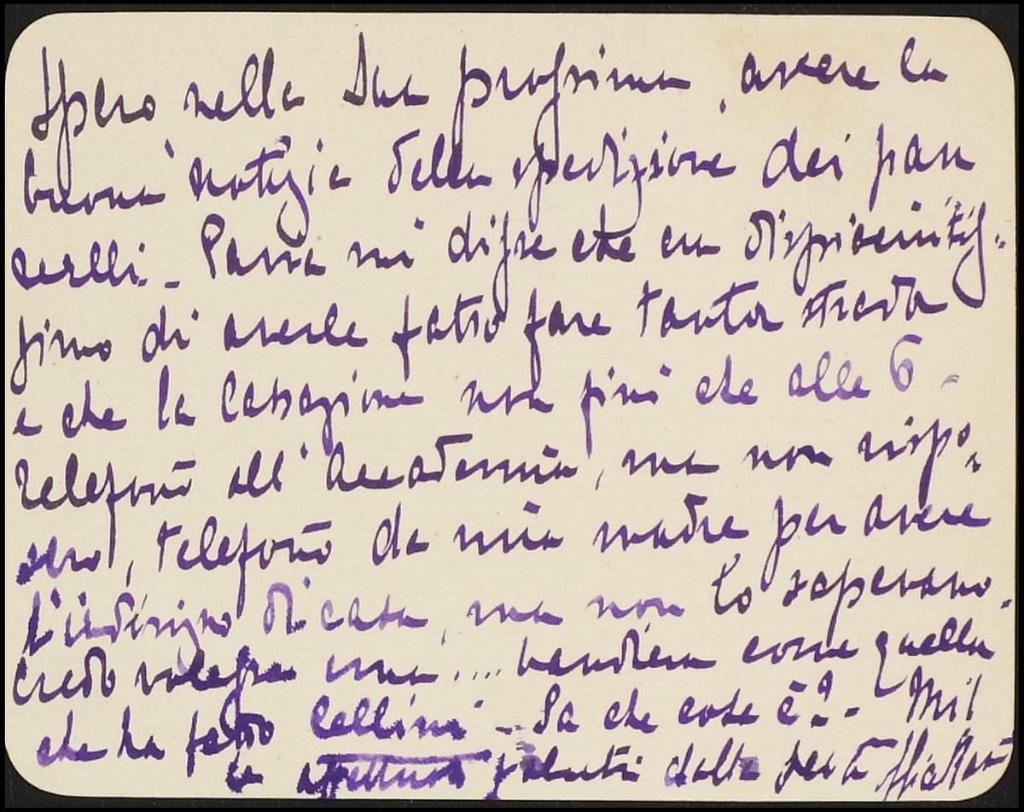 Spero nella Sua prossima, avere la
buona notizia della spedizione dei pan
nelli - mi disse che era dispiacentis-
simo di averle fatto fare tanta strada
e che la Cassazione non finì che alle 6 -
Telefonò all'Accademia, ma non rispo-
sero, telefonò da mia madre per avere
l'indirizzo di casa, ma non lo sapevano.
Credo volesse una .... bandiera come quella
che ha fatto Cellini - Sa che cosa è? - Mil
e affettuosi saluti dalla Sua